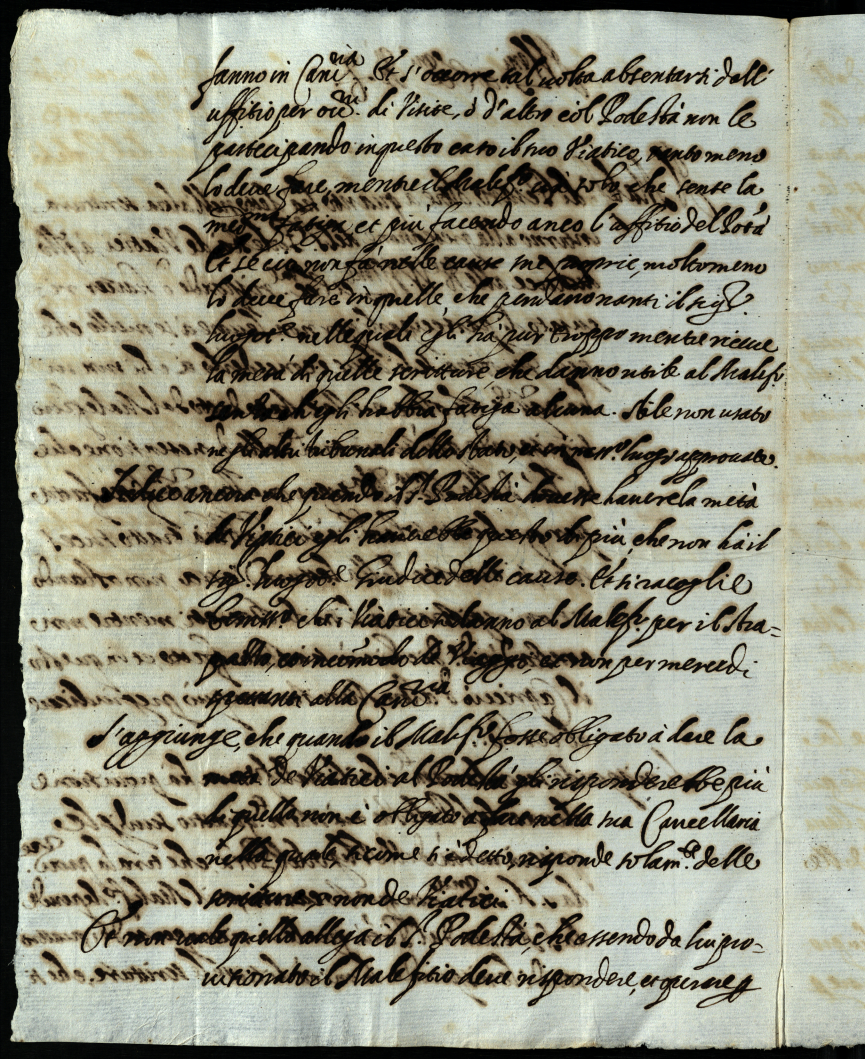 fanno in Canc.ria Et s'occorre tal volta absentarsi dall'
uffitio per occ.ni di Visite, ò d'altro è il Podestà non le
partecipando in questo caso il suo Viatico, tanto meno
lo deve fare, mentre il Malef.o và solo, che sente la
med.ma fatica, et più facendo anco l'uffitio del Potà
Et se ciò non fà nelle cause sue proprie, molto meno
lo deve fare in quelle, che pendano nanti il sig.r
luogot.e nelle quali egli hà pur troppo mentre riceve
la metà di quelle scritture, che danno utile al Malef.o
senza ch'egli habbia fatiga alcuna. stile non usato
negli altri tribunali dello stato, et in ness.o luogo approvato.
ancora che quando il s.r Podestà dovesse havere la metà
de Viatici egli haverebbe questo di più, che non hà il
sig.r luogot.e Giudice delle cause. Et si racoglie
beniss.o che i Viatici si danno al Malef.o per il stra=
pazzo, et incomodo de Viaggio, et non per mercedi
spettanti alla Canc.ria
S'aggiunge, che quando il Malef.o fosse obligato à dare la
metà de Viatici al Podestà gli rispondere ebbe più
di quello non è obligato a fare nella sua Cancellaria
nella quale sicome si è detto, risponde solam.te delle
scritture, e non de Viatici
Et non vale quello allega il S.r Podestà, che essendo da lui pro=
visionato il Malefitio deve rispondere, et